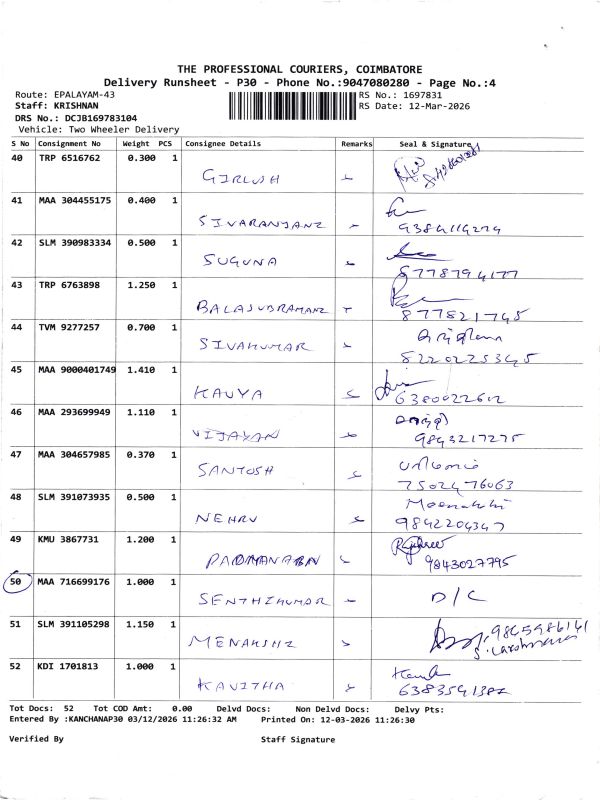 THE PROFESSIONAL COURIERS, COIMBATORE
Delivery Runsheet - P30 - Phone No.:9047080280 - Page No.:4
Route: EPALAYAM-43 RS No.: 1697831
Staff: KRISHNAN RS Date: 12-Mar-2026
DRS No.: DCJB169783104
Vehicle: Two Wheeler Delivery
S No Consignment No Weight PCS Consignee Details Remarks Seal & Signature
40 TRP 6516762 0.300 1
GIRLUSH
41 MAA 304455175 0.400 1
SIVARANJANI
9384114274
42 SLM 390983334 0.500 1
SUGUNA
8778794177
43 TRP 6763898 1.250 1
BALASUBRAMANI 877821745
44 TVM 9277257 0.700 1
SIVAKUMAR
8220225345
45 MAA 9000401749 1.410 1
KAVYA 6380022612
46 MAA 293699949 1.110 1
VIJAYAN 9843217275
47 MAA 304657985 0.370 1
SANTOSH
7502476063
48 SLM 391073935 0.500 1 Meenakshi
NEHRU 9842204347
49 KMU 3867731 1.200 1
PADMANABN 9843027795
50 MAA 716699176 1.000 1
SENTHIKUMAR D/C
51 SLM 391105298 1.150 1 9865986141
MENAKSHI
52 KDI 1701813 1.000 1
KAVITHA 6383541382
Tot Docs: 52 Tot COD Amt: 0.00 Delvd Docs: Non Delvd Docs: Delvy Pts:
Entered By :KANCHANAP30 03/12/2026 11:26:32 AM Printed On: 12-03-2026 11:26:30
Verified By Staff Signature